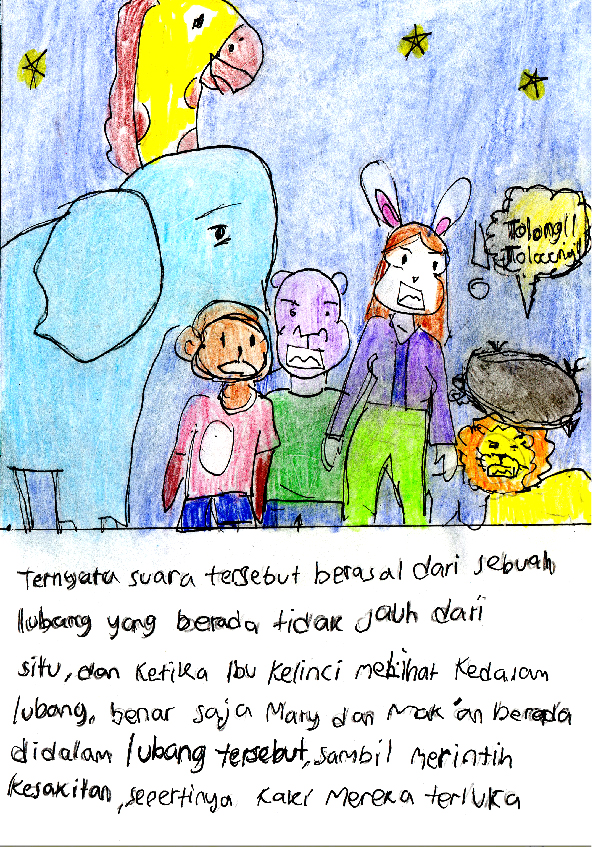 Tolong!!
Toloong!
Ternyata suara tersebut berasal dari sebuah
lubang yang berada tidak jauh dari
situ, dan ketika Ibu kelinci melihat kedalam
lubang, benar saja Mary dan Mak'an berada
didalam lubang tersebut, sambil merintih
kesakitan, sepertinya kaki mereka terluka